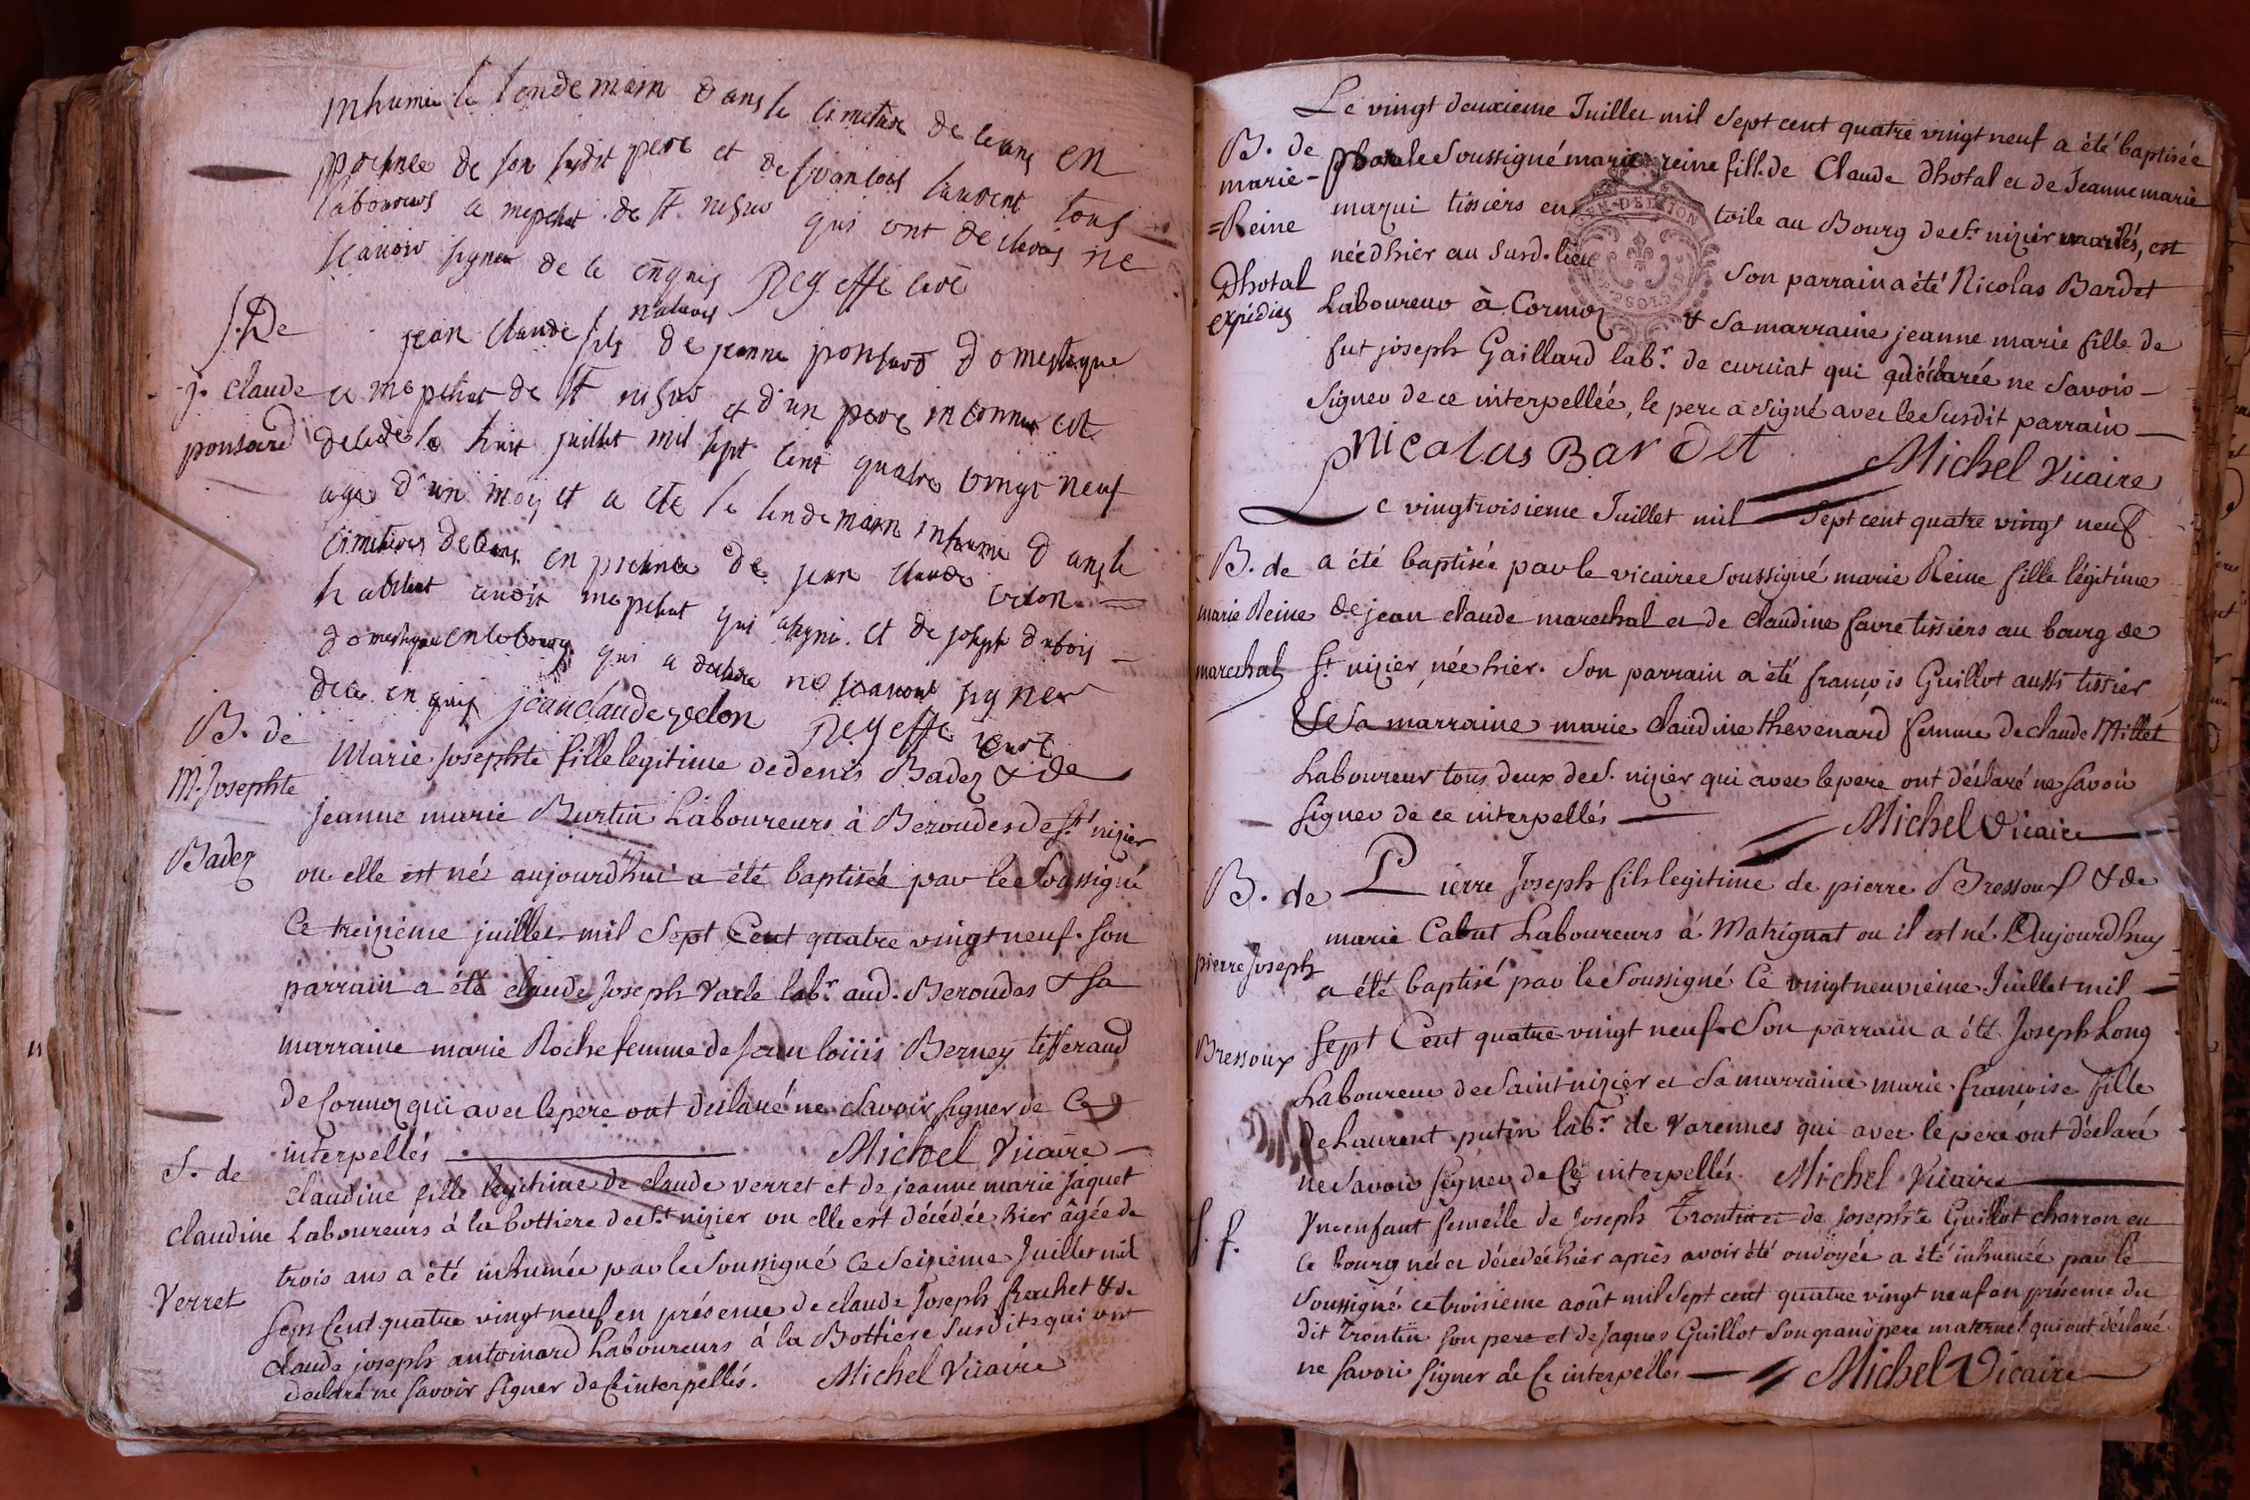 inhumé le lendemain dans le cimetiere de ceans en
presence de son susdit pere et de francois laurent tous
laboureurs a mepelat de st nisier qui ont declares ne
scavoir signer de ce enquis Reyeffe curé
S. De
j. claude
ponsard
jean claude fils naturel de jeanne ponsard domestique
a mepelat de st nisier et d'un pere inconnu est
decede le huit juillet mil sept cent quatre vingt neuf
age d'un moy et a ete le lendemain inhumé dans le
cimetiere de ceans en presence de jean claude velon
habitant audit mepelat qui a signé et de joseph dubois
domestique en ce bourg qui a declare ne scavoir signer
de ce enquis jean claude velon Reyeffe curé
B. de
M. Josephte
Badez
Marie josephte fille legitime de denis Badez & de
jeanne marie Burtin Laboureurs à Beroudes de st nizier
ou elle est née aujourd'hui a été baptisée par le Soussigné
Ce treizième juillet mil Sept Cent quatre vingt neuf. son
parrain a été claude Joseph vacle labr. aud. Beroudes & sa
marraine marie Roche femme de jean loüis Berney tisserand
de Cormoz qui avec le pere ont declaré ne Savoir signer de Ce
interpellés Michel Vicaire
S. de
claudine
Verret
claudine fille legitime de claude verret et de jeanne marie jaquet
Laboureurs à la bottiere de st nizier ou elle est décédée hier âgée de
trois ans a été inhumée par le Soussigné Ce Seizieme Juillet mil
Sept Cent quatre vingt neuf en présence de claude Joseph frachet & de
claude joseph antoinard Laboureurs à la Bottiere Susdite qui ont
declaré ne Savoir Signer de Ce interpellés. Michel Vicaire
Le vingt deuxieme Juillet mil Sept cent quatre vingt neuf a été baptisée
B. de
marie-
=Reine
Dhotal
expédiez
par le Soussigné marie reine fill. de Claude Dhotal et de Jeanne marie
mazui tissiers en toile au Bourg de st. nizier mariés, est
née d'hier au Susd. lieu Son parrain a été Nicolas Bardet
Laboureur à Cormoz & Sa marraine jeanne marie fille de
fut joseph Gaillard labr. de curciat qui a déclarée ne Savoir
Signer de ce interpellée, le pere a Signé avec le Susdit parrain
Nicolas Bardet Michel Vicaire
Le vingtroisieme Juillet mil Sept cent quatre vingt neuf
B. de
marie Reine
marechal
a été baptisée par le vicaire Soussigné marie Reine fille légitime
de jean claude marechal et de Claudine favre tissiers au bourg de
st. nizier, née hier. Son parrain a été françois Guillot aussi tissier
et Sa marraine marie Claudine thevenard femme de claude Millet
Laboureur tous deux de S. nizier qui avec le pere ont déclaré ne Savoir
Signer de ce interpellés Michel Vicaire
B. de
pierre Joseph
Bressoux
Pierre Joseph fils legitime de pierre Bressoux & de
marie Cabut Laboureurs à Matrignat ou il est né Aujourdhuy
a été baptisé par le Soussigné Ce vingt neuvieme Juillet mil
Sept Cent quatre vingt neuf. Son parrain a été Joseph Long
Laboureur de Saint nizier et Sa marraine marie françoise fille
de Laurent putin labr. de Varennes qui avec le pere ont déclaré
ne Savoir Signer de Ce interpellés. Michel Vicaire
S. f.
Un enfant femelle de Joseph Trontin et de Josephte Guillot charron en
Ce bourg née et décédée hier après avoir été ondoyée a été inhumée par le
Soussigné Ce troisieme août mil Sept cent quatre vingt neuf en présence du
dit Trontin Son pere et de Jaques Guillot Son grand pere maternel qui ont déclaré
ne Savoir Signer de Ce interpellés Michel Vicaire